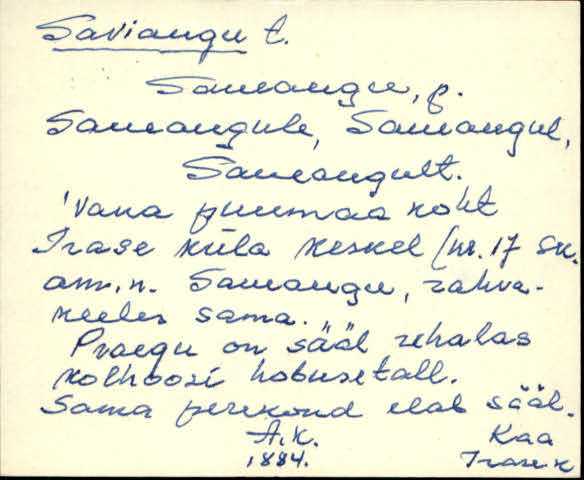 Saviangu t.
Saueaugu, g.
Saueaugule, Saueaugul,
Saueaugult.
'Vana puumaa koht
Irase küla keskel (nr. 17 sk.
am.n. Saueaugu, rahva-
keeles sama.
Praegu on sääl rehalas
kolhoosi hobusetall.
Sama perekond elab sääl.
A.K. Kaa
1884. Irase k